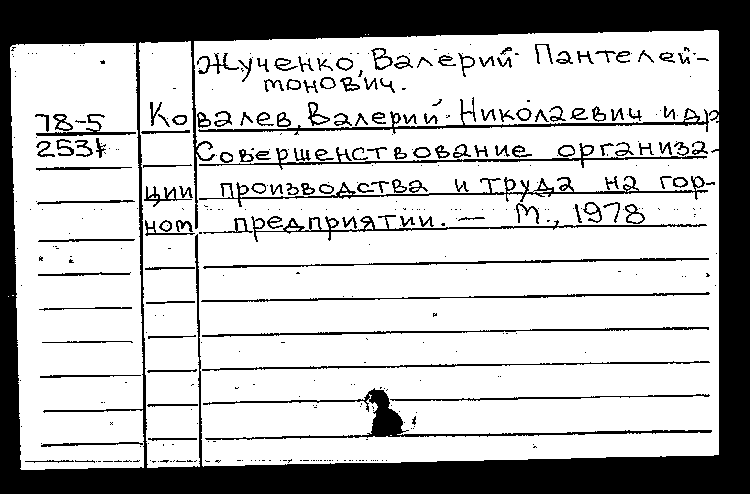 Жученко, Валерий Пантелей-
монович.
78-5 Ковалев, Валерий Николаевич и др
Совершенствование организа-
ции производства и труда на гор-
ном предприятии. — М., 1978